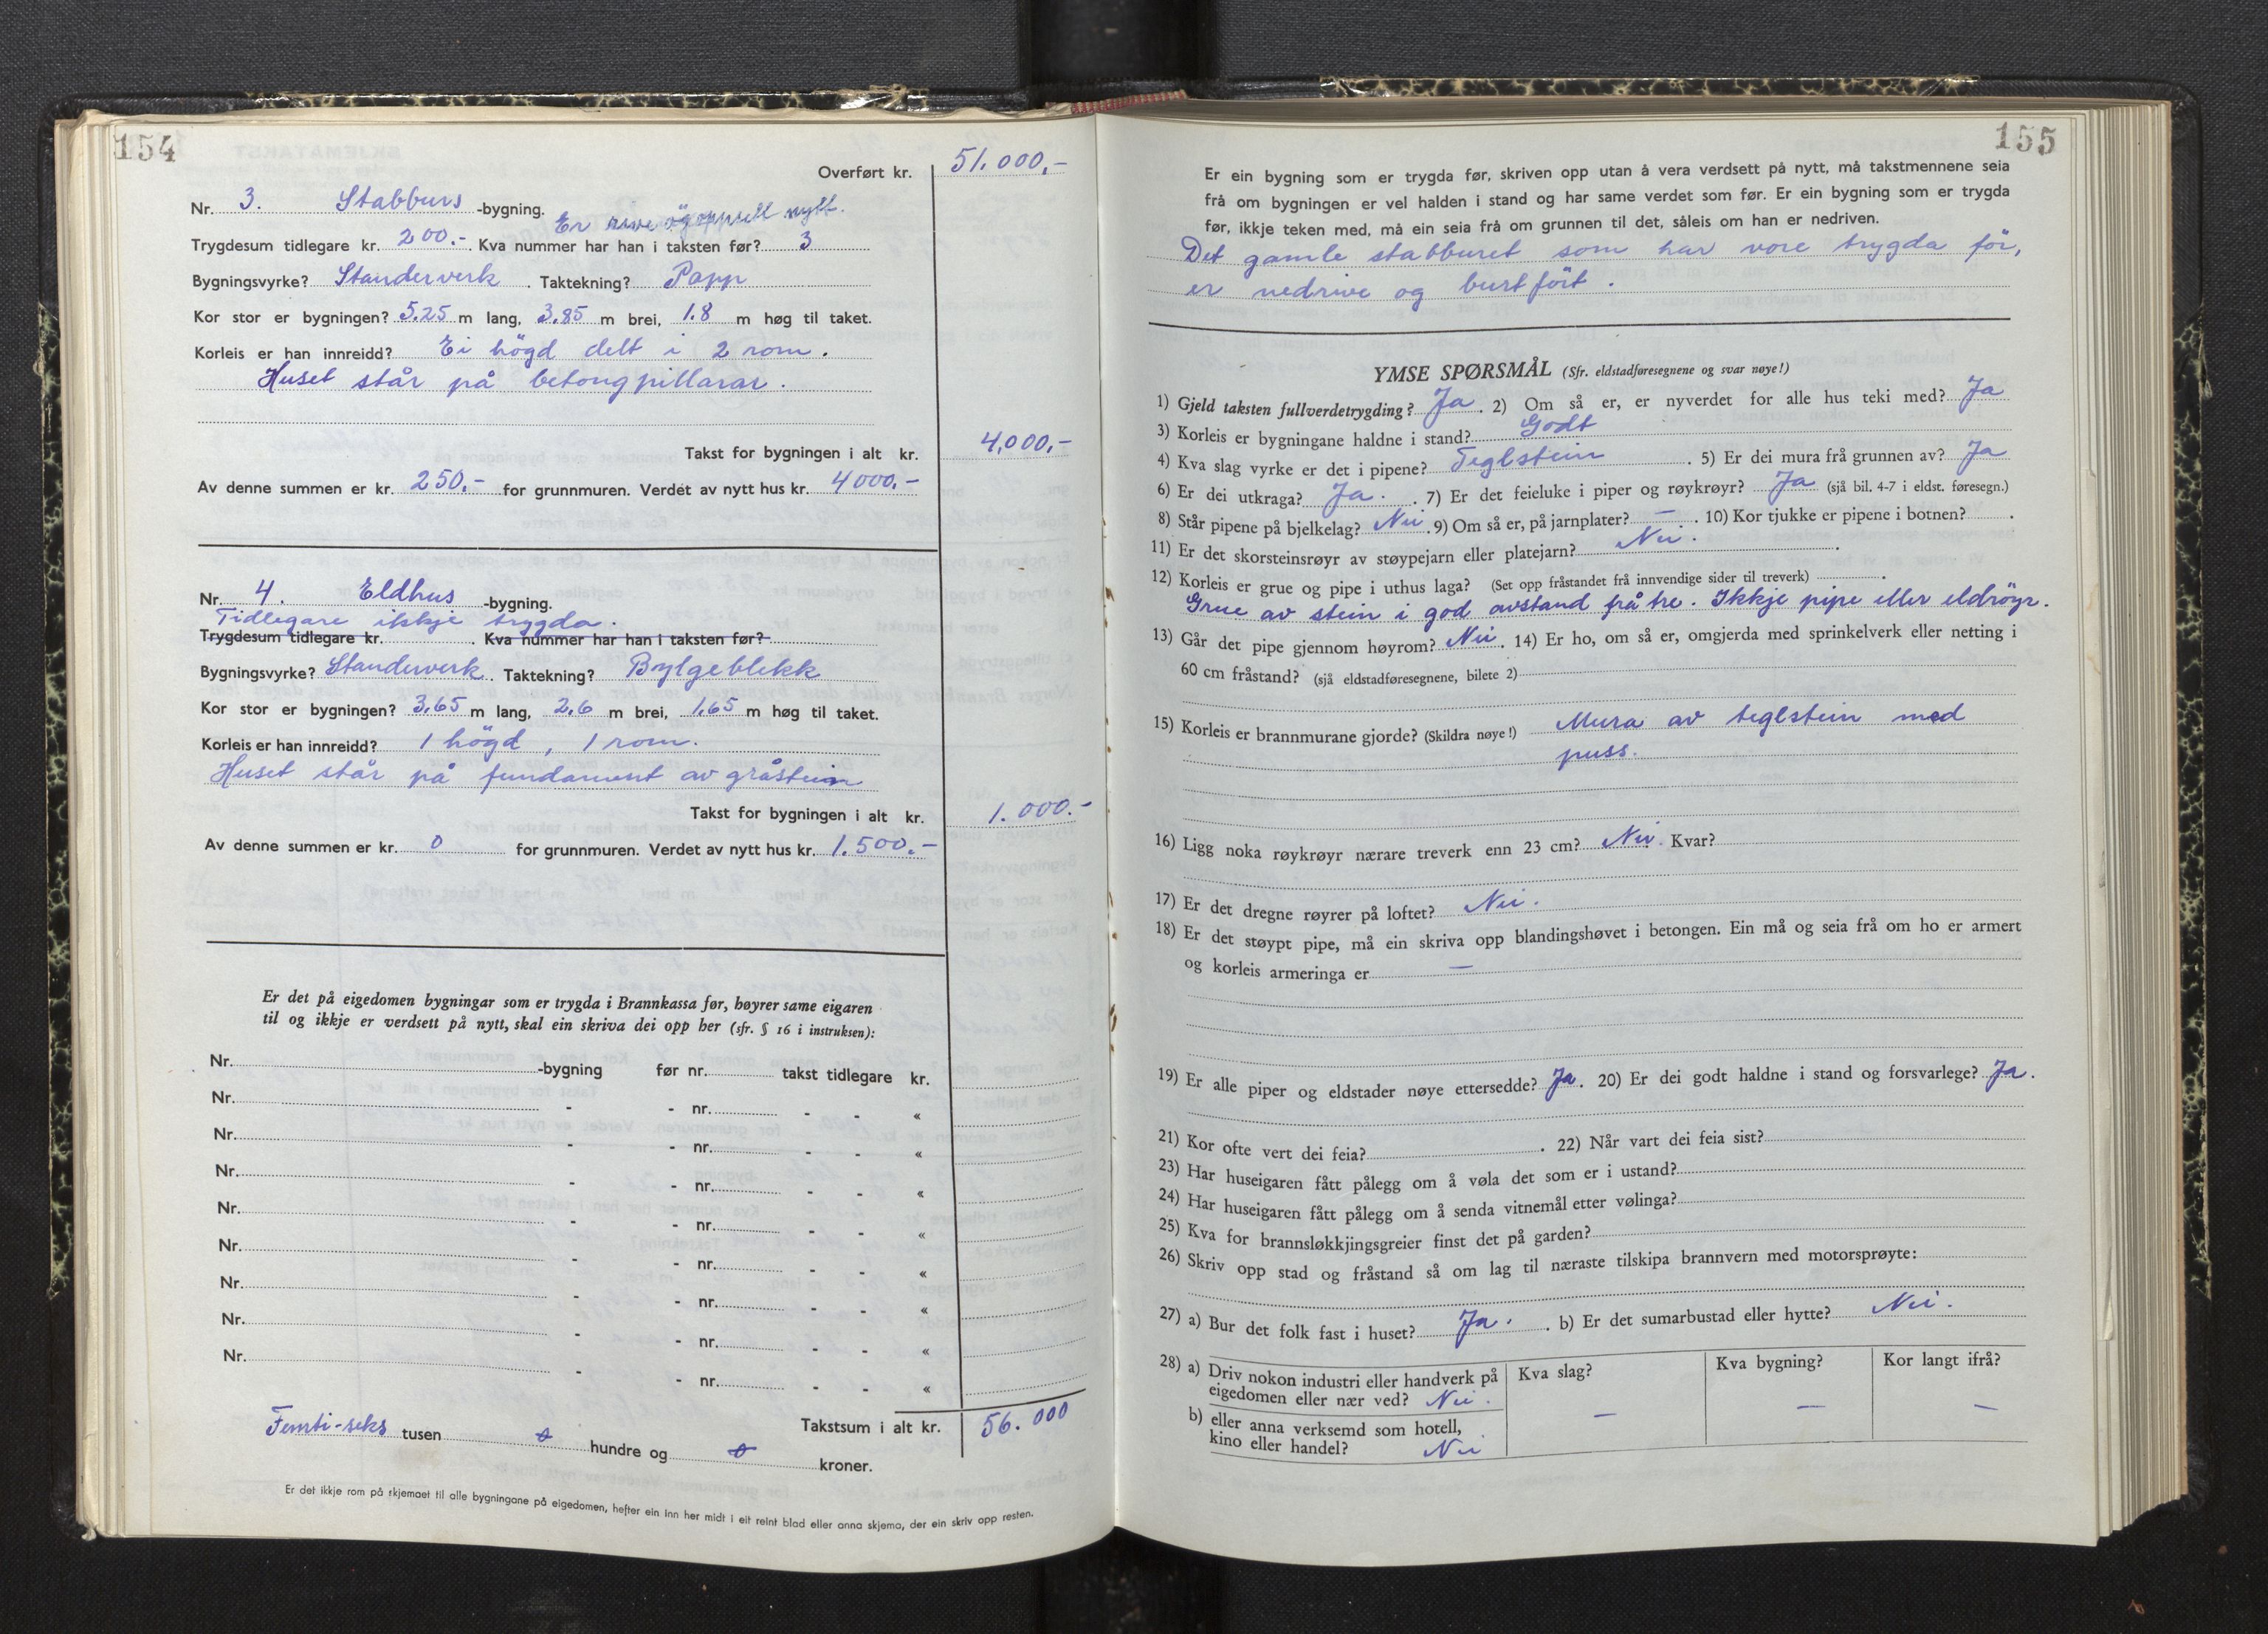 154
Overført kr. 51.000,-
Nr. 3. Stabburs -bygning. Er rive og oppsett nytt.
Trygdesum tidlegare kr. 200.- . Kva nummer har han i taksten før? 3
Bygningsvyrke? Standerverk . Taktekning? Papp
Kor stor er bygningen? 5.25 m lang, 3.85 m brei, 1.8 m høg til taket.
Korleis er han innreidd? Ei högd delt i 2 rom .
Huset står på betongpillarar .
Takst for bygningen i alt kr. 4,000,-
Av denne summen er kr. 250.- for grunnmuren. Verdet av nytt hus kr. 4000.-
Nr. 4. Eldhus -bygning.
Tidlegare ikkje trygda.
Trygdesum tidlegare kr. . Kva nummer har han i taksten før?
Bygningsvyrke? Standerverk . Taktekning? Bylgeblekk
Kor stor er bygningen? 3,65 m lang, 2,6 m brei, 1,65 m høg til taket.
Korleis er han innreidd? 1 högd , 1 rom.
Huset står på fundament av gråstein
Takst for bygningen i alt kr. 1.000.-
Av denne summen er kr. 0 for grunnmuren. Verdet av nytt hus kr. 1.500.-
Er det på eigedomen bygningar som er trygda i Brannkassa før, høyrer same eigaren
til og ikkje er verdsett på nytt, skal ein skriva dei opp her (sfr. § 16 i instruksen):
Nr. -bygning før nr. takst tidlegare kr.
Nr. - - nr. - - «
Nr. - - nr. - - «
Nr. - - nr. - - «
Nr. - - nr. - - «
Nr. - - nr. - - «
Nr. - - nr. - - «
Nr. - - nr. - - «
Nr. - - nr. - - «
Takstsum i alt kr. 56.000
Femti-seks tusen 0 hundre og 0 kroner.
Er det ikkje rom på skjemaet til alle bygningane på eigedomen, hefter ein inn her midt i eit reint blad eller anna skjema, der ein skriv opp resten.
155
Er ein bygning som er trygda før, skriven opp utan å vera verdsett på nytt, må takstmennene seia
frå om bygningen er vel halden i stand og har same verdet som før. Er ein bygning som er trygda
før, ikkje teken med, må ein seia frå om grunnen til det, såleis om han er nedriven.
Det gamle stabburet som har vore trygda för,
er nedrive og burtfört .
YMSE SPØRSMÅL (Sfr. eldstadføresegnene og svar nøye!)
1) Gjeld taksten fullverdetrygding? Ja . 2) Om så er, er nyverdet for alle hus teki med? Ja
3) Korleis er bygningane haldne i stand? Godt
4) Kva slag vyrke er det i pipene? Teglstein . 5) Er dei mura frå grunnen av? Ja
6) Er dei utkraga? Ja. . 7) Er det feieluke i piper og røykrøyr? Ja (sjå bil. 4-7 i eldst. føresegn.)
8) Står pipene på bjelkelag? Nei . 9) Om så er, på jarnplater? - . 10) Kor tjukke er pipene i botnen? .
11) Er det skorsteinsrøyr av støypejarn eller platejarn? Nei. .
12) Korleis er grue og pipe i uthus laga? (Set opp fråstandet frå innvendige sider til treverk) .
Grue av stein i god avstand frå tre. Ikkje pipe eller eldröyr.
13) Går det pipe gjennom høyrom? Nei . 14) Er ho, om så er, omgjerda med sprinkelverk eller netting i
60 cm fråstand? (sjå eldstadføresegnene, bilete 2)
15) Korleis er brannmurane gjorde? (Skildra nøye!) Mura av teglstein med
puss.
16) Ligg noka røykrøyr nærare treverk enn 23 cm? Nei. Kvar?
17) Er det dregne røyrer på loftet? Nei.
18) Er det støypt pipe, må ein skriva opp blandingshøvet i betongen. Ein må og seia frå om ho er armert
og korleis armeringa er -
19) Er alle piper og eldstader nøye ettersedde? Ja . 20) Er dei godt haldne i stand og forsvarlege? Ja .
21) Kor ofte vert dei feia? . 22) Når vart dei feia sist?
23) Har huseigaren fått pålegg om å vøla det som er i ustand?
24) Har huseigaren fått pålegg om å senda vitnemål etter vølinga?
25) Kva for brannsløkkjingsgreier finst det på garden?
26) Skriv opp stad og fråstand så om lag til næraste tilskipa brannvern med motorsprøyte:
27) a) Bur det folk fast i huset? Ja. . b) Er det sumarbustad eller hytte? Nei.
28) a) Driv nokon industri eller handverk på Kva slag? Kva bygning? Kor langt ifrå?
eigedomen eller nær ved? Nei.
b) eller anna verksemd som hotell, - - -
kino eller handel? Nei